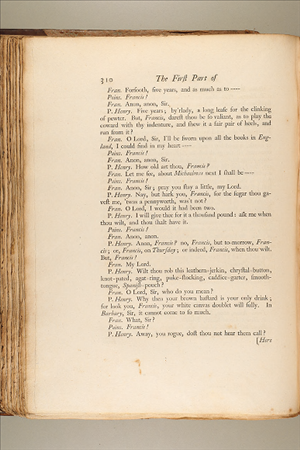 310 The First Part of
Fran. Forsooth, five years, and as much as to ----
Poins. Francis!
Fran. Anon, anon, Sir.
P. Henry. Five years; by'rlady, a long lease for the clinking
of pewter. But, Francis, darest thou be so valiant, as to play the
coward with thy indenture, and shew it a fair pair of heels, and
run from it?
Fran. O Lord, Sir, I'll be sworn upon all the books in Eng-
land, I could find in my heart ----
Poins. Francis!
Fran. Anon, anon, Sir.
P. Henry. How old art thou, Francis?
Fran. Let me see, about Michaelmas next I shall be ----
Poins. Francis!
Fran. Anon, Sir; pray you stay a little, my Lord.
P. Henry. Nay, but hark you, Francis, for the sugar thou ga-
vest me, 'twas a pennyworth, was't not?
Fran. O Lord, I would it had been two.
P. Henry. I will give thee for it a thousand pound: ask me when
thou wilt, and thou shalt have it.
Poins. Francis!
Fran. Anon, anon.
P. Henry. Anon, Francis? no, Francis, but to-morrow, Fran-
cis; or, Francis, on Thursday; or indeed, Francis, when thou wilt.
But, Francis!
Fran. My Lord.
P. Henry. Wilt thou rob this leathern-jerkin, chrystal-button,
knot-pated, agat-ring, puke-stocking, caddice-garter, smooth-
tongue, Spanish-pouch?
Fran. O Lord, Sir, who do you mean?
P. Henry. Why then your brown bastard is your only drink;
for look you, Francis, your white canvas doublet will sully. In
Barbary, Sir, it cannot come to so much.
Fran. What, Sir?
Poins. Francis!
P. Henry. Away, you rogue, dost thou not hear them call?
[Here